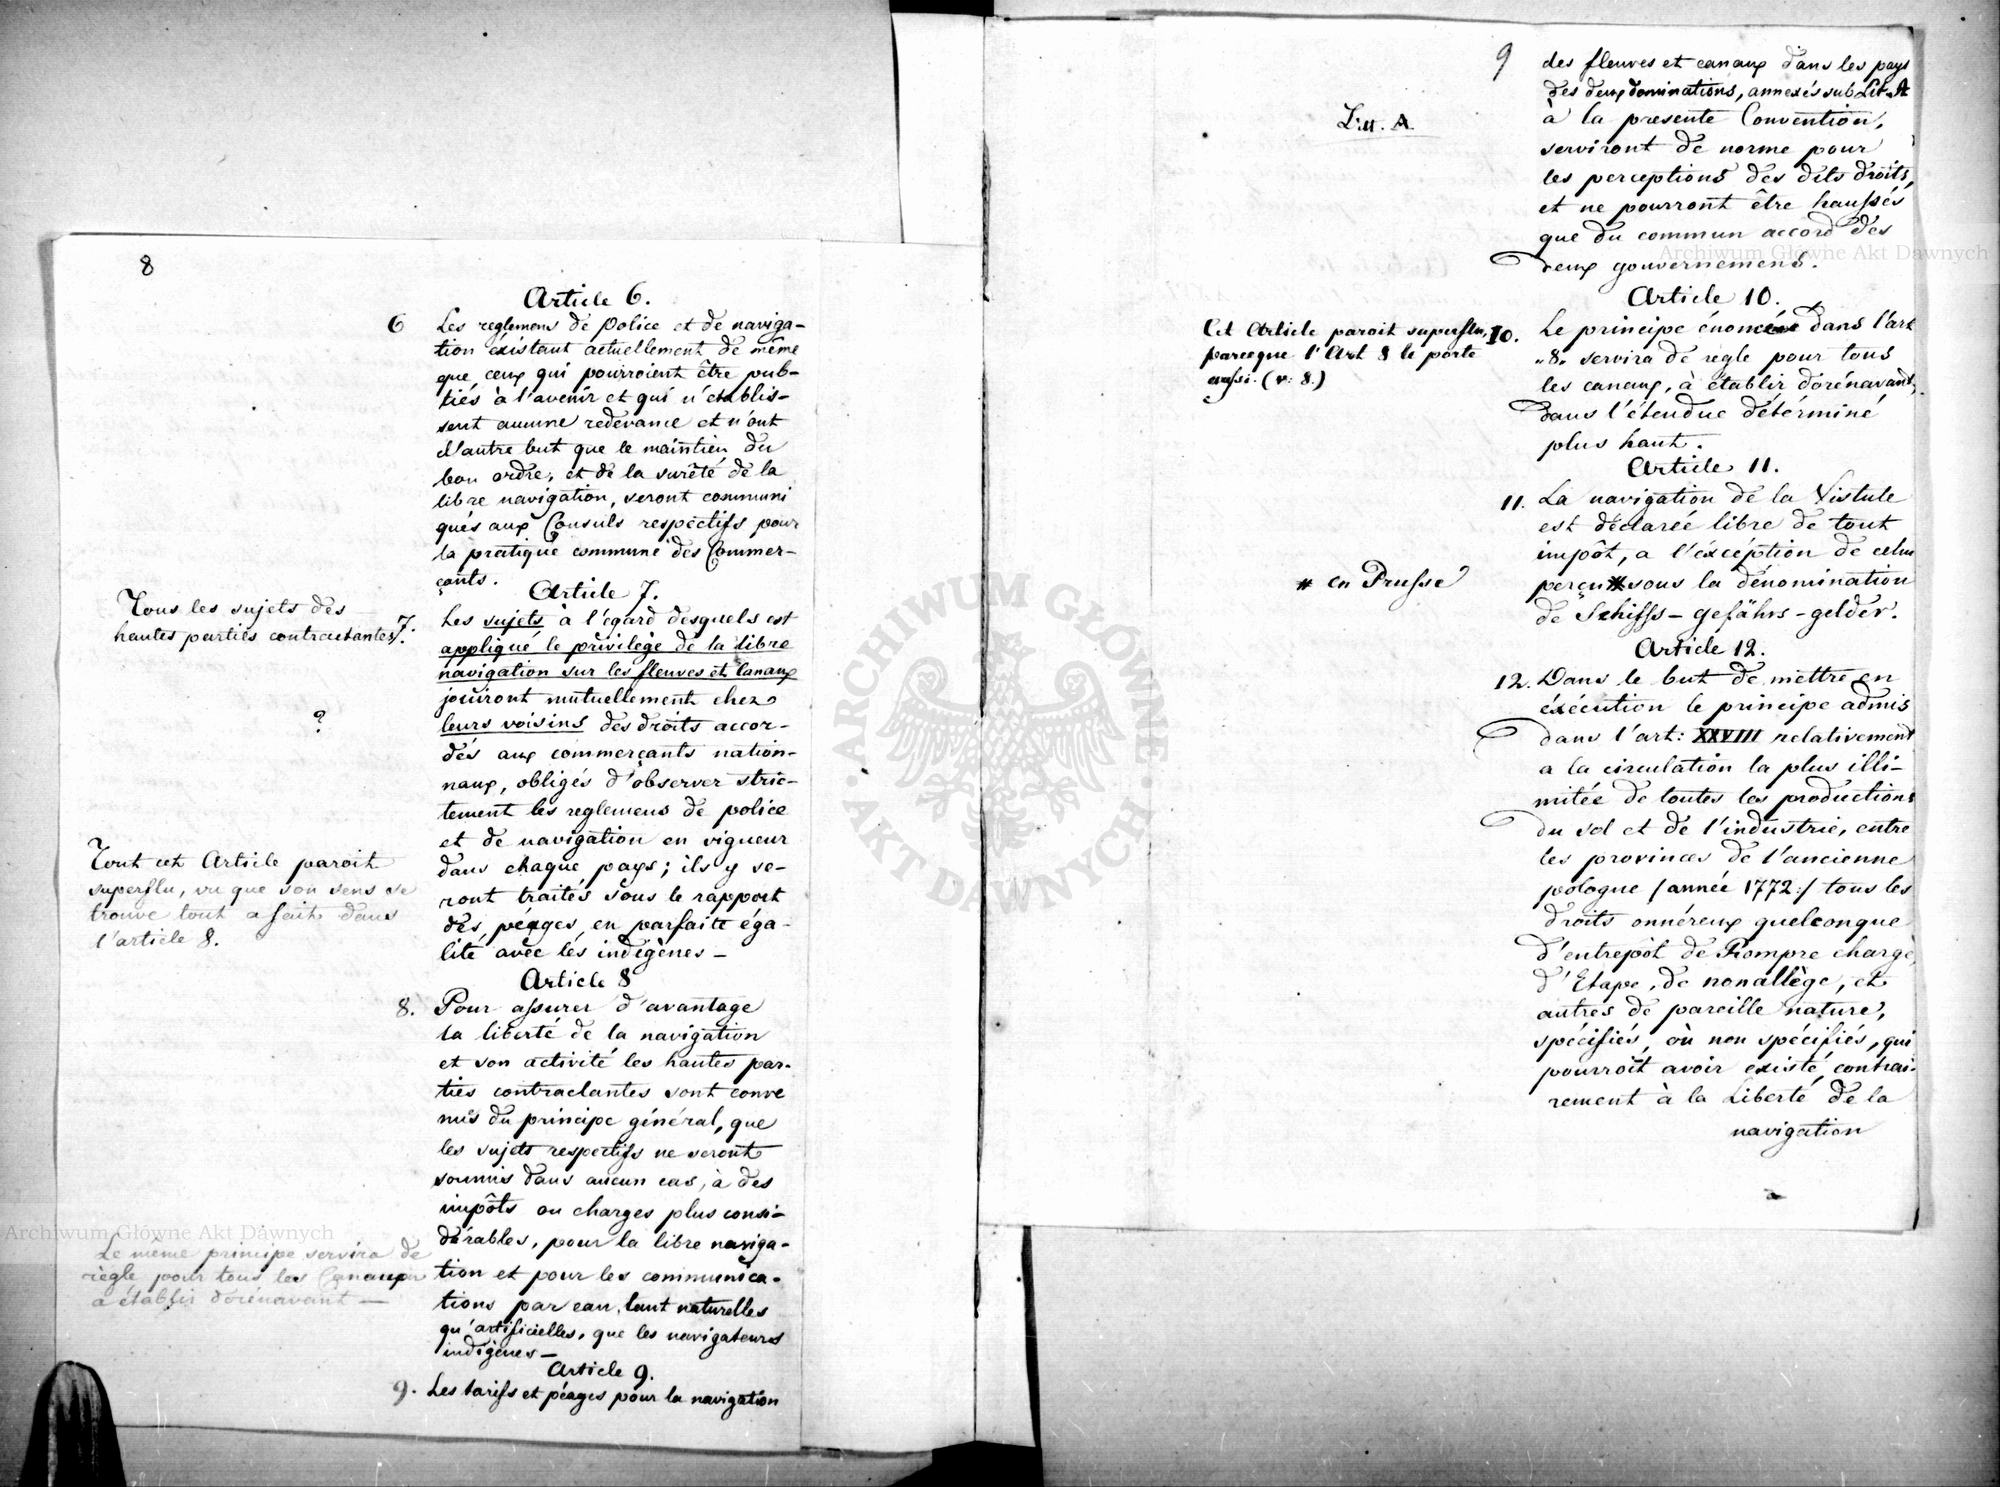 8
Article 6.
6 Les reglemens de police et de naviga-
tion éxistant actuellement de même
que, ceux qui pourroient être pub-
liés à l'avenir et qui n'etablis-
sent aucune redevance et n'ont
d'autre but que le maintien du
bon ordre, et de la sureté de la
libre navigation, seront communi
qués aux Consuls respectifs pour
la pratique commune des Commer-
çants.
Article 7.
Tous les sujets des
hautes parties contractantes
?
7. Les sujets à l'égard desquels est
appliqué le privilège de la libre
navigation sur les fleuves et Canaux
jouiront mutuellement chez
leurs voisins des droits accor-
dés aux commerçants nation-
naux, obligés d'observer stric-
tement les reglemens de police
et de navigation en vigueur
dans chaque pays; ils y se-
ront traités sous le rapport
des péages, en parfaite éga-
lité avec les indigènes –
Tout cet Article paroit
superflu, vu que son sens se
trouve tout a fait dans
l'article 8.
Article 8
8. Pour assurer d'avantage
la liberté de la navigation
et son activité les hautes par-
ties contractantes sont conve
nus du principe général, que
les sujets respectifs ne seront
soumis dans aucun cas, à des
impôts ou charges plus consi-
dérables, pour la libre naviga-
tion et pour les communica-
tions par eau, tant naturelles
qu'artificielles, que les navigateurs
indigènes –
Le même principe servira de
règle pour tous les Canaux
a établir dorénavant —
Article 9.
9. Les tarifs et péages pour la navigation
9
Litt. A.
des fleuves et canaux dans les pays
des deux dominations, annexés sub Lit. A
à la presente Convention,
serviront de norme pour
les perceptions des dits droits,
et ne pourront être haussés
que du commun accord des
deux gouvernemens.
Article 10.
Cet Article paroit superflu,
parceque l'Art 8 le porte
aussi. (v: 8.)
10. Le principe énoncé dans l'art
„8„ servira de règle pour tous
les canaux, à établir dorénavant,
dans l'étendue déterminé
plus haut.
Article 11.
11. La navigation de la Vistule
est déclarée libre de tout
impôt, a l'éxception de celui
perçu # sous la dénomination
de Schiffs – gefährs – gelder.
# en Prusse
Article 12.
12. Dans le but de mettre en
éxécution le principe admis
dans l'art: XXVIII relativement
a la circulation la plus illi-
mitée de toutes les productions
du sol et de l'industrie, entre
les provinces de l'ancienne
pologne /année 1772:/ tous les
droits onnéreux quelconque
d'entrepôt de Rompre charge,
d'Etape, de nonallège, et
autres de pareille nature,
spécifiés, où non spécifiés, qui
pourroit avoir existé, contrai-
rement à la Liberté de la
navigation
Archiwum Główne Akt Dawnych
Archiwum Główne Akt Dawnych
ARCHIWUM GŁÓWNE · AKT DAWNYCH ·